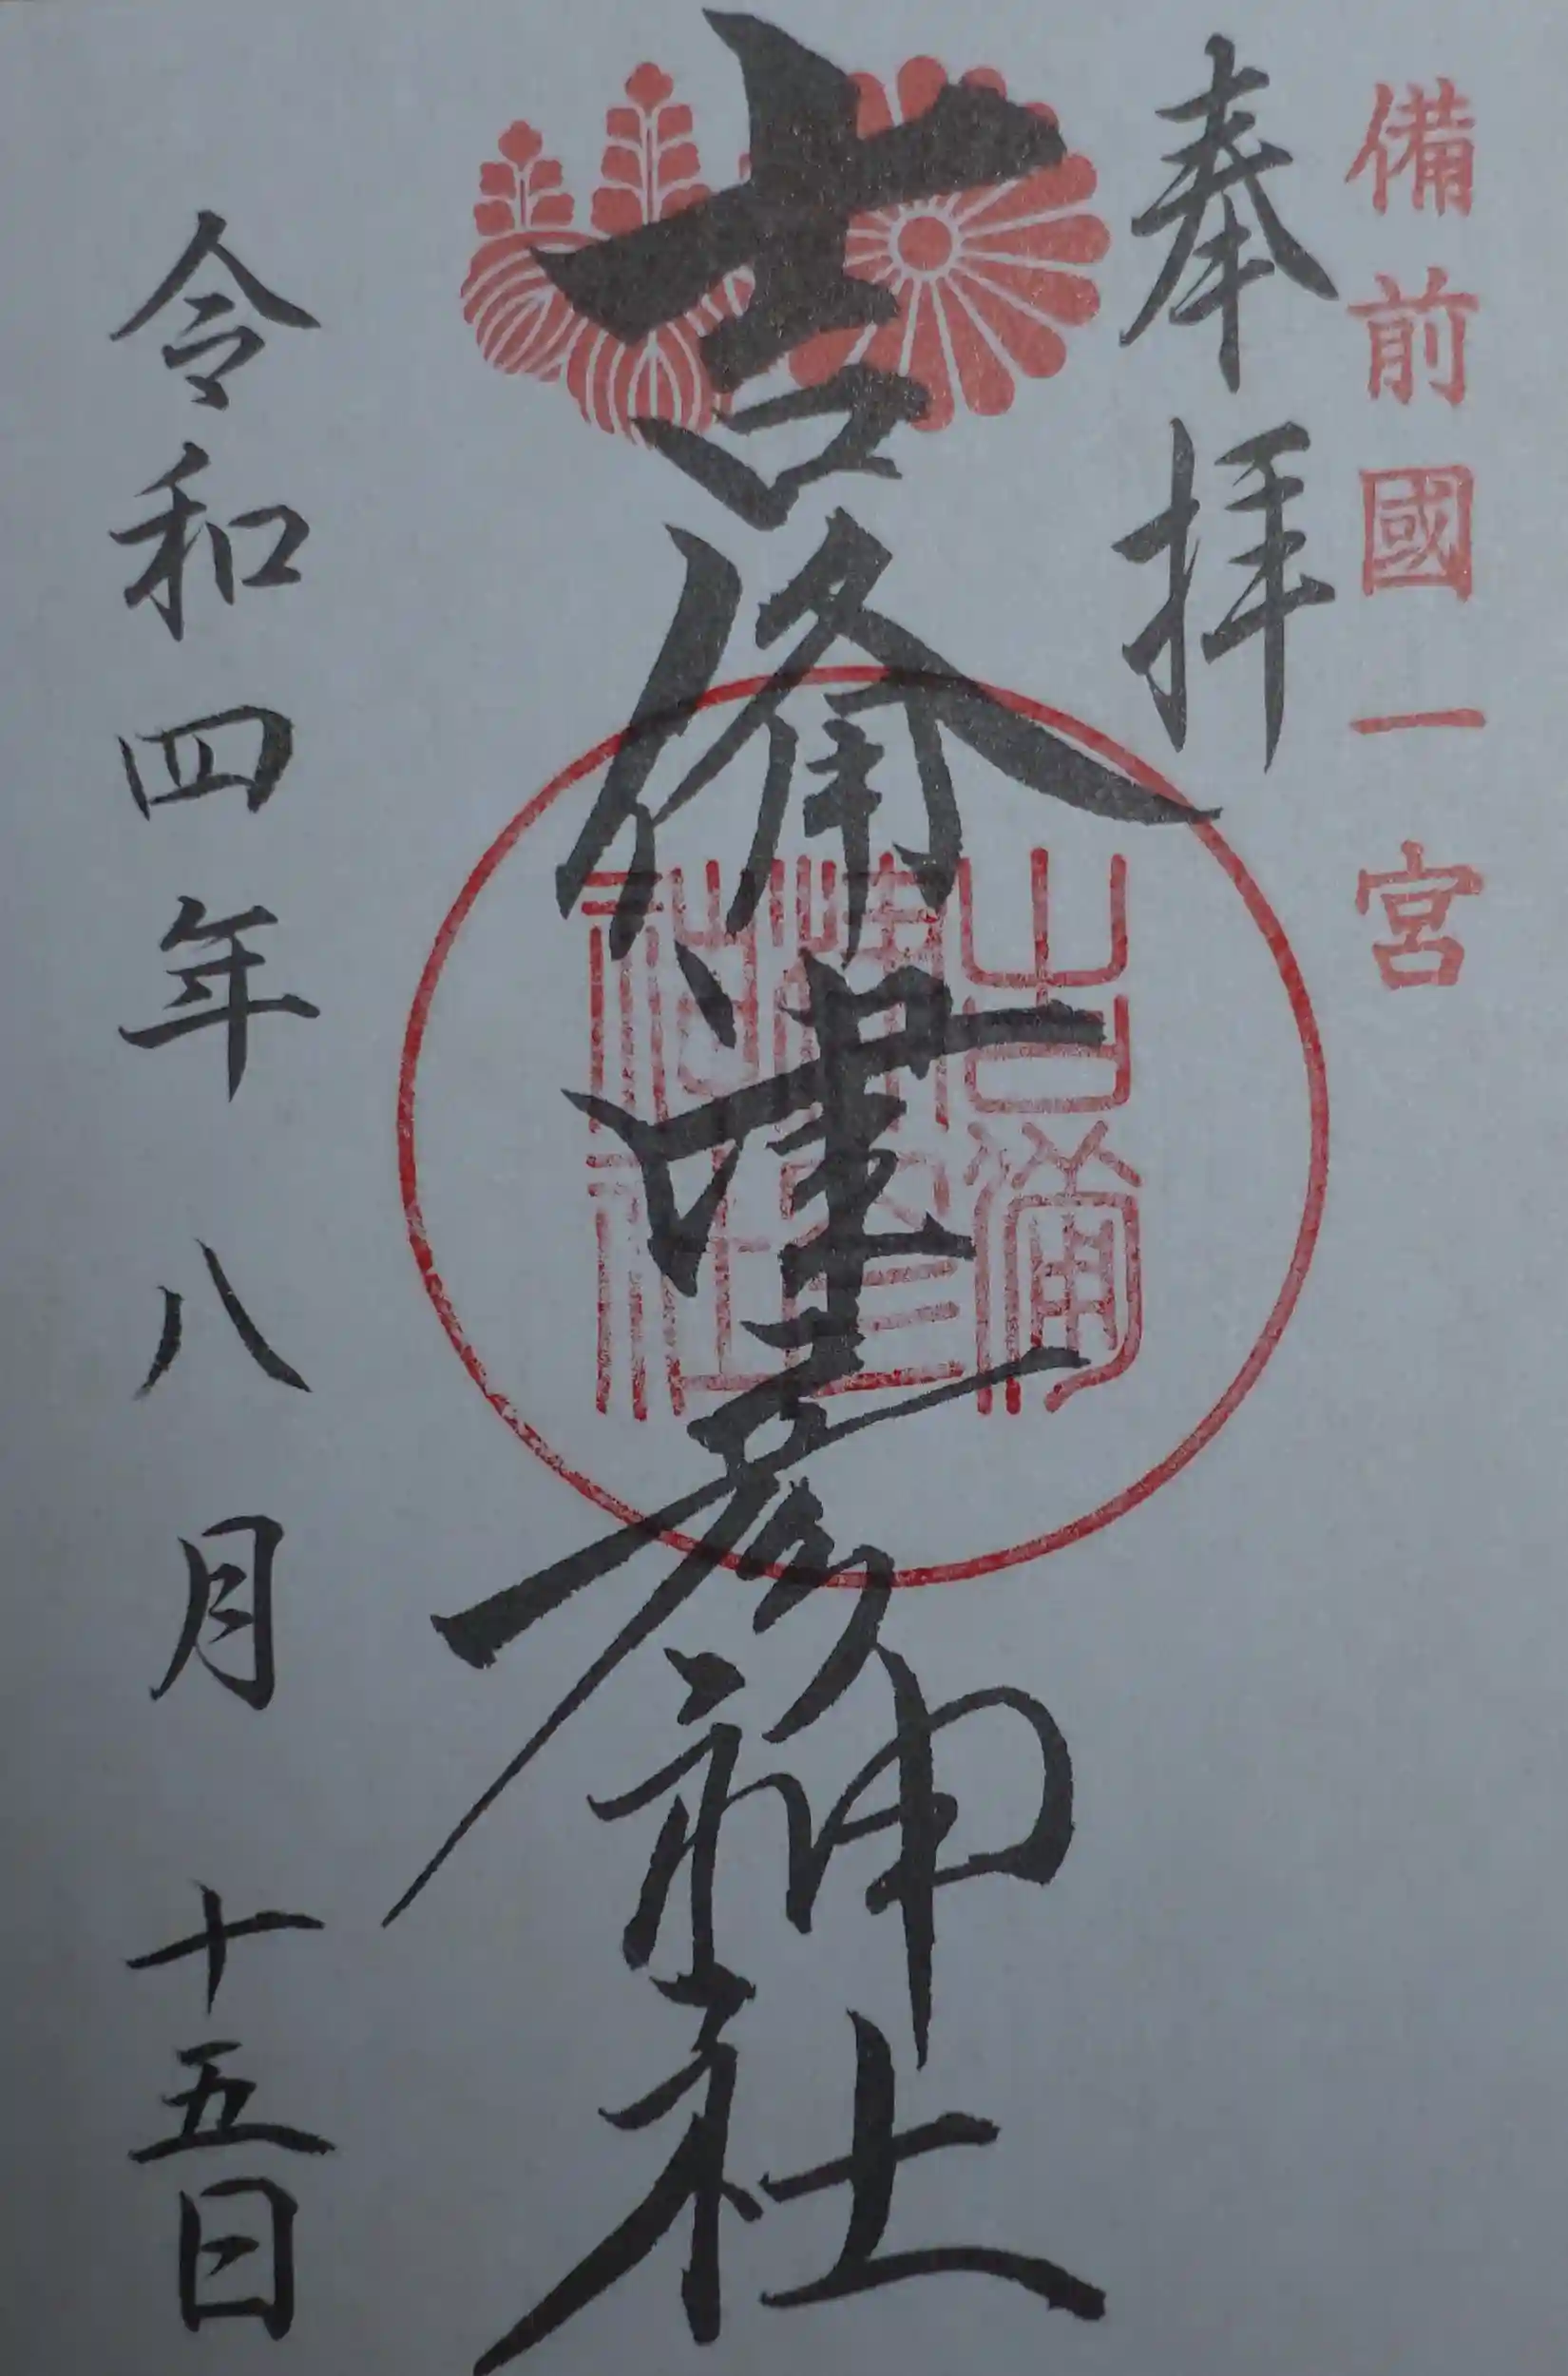 備前國一宮
奉拝
吉備津彦神社
吉備津彦神社
令和四年八月十五日